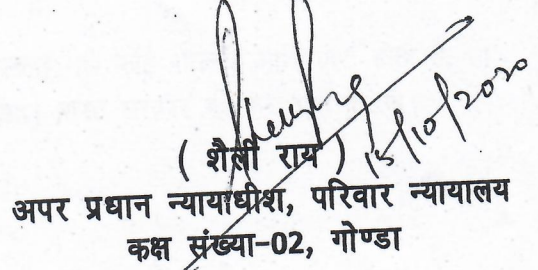 15/10/2020
( शैली राय )
अपर प्रधान न्यायाधीश, परिवार न्यायालय
कक्ष संख्या-02, गोण्डा